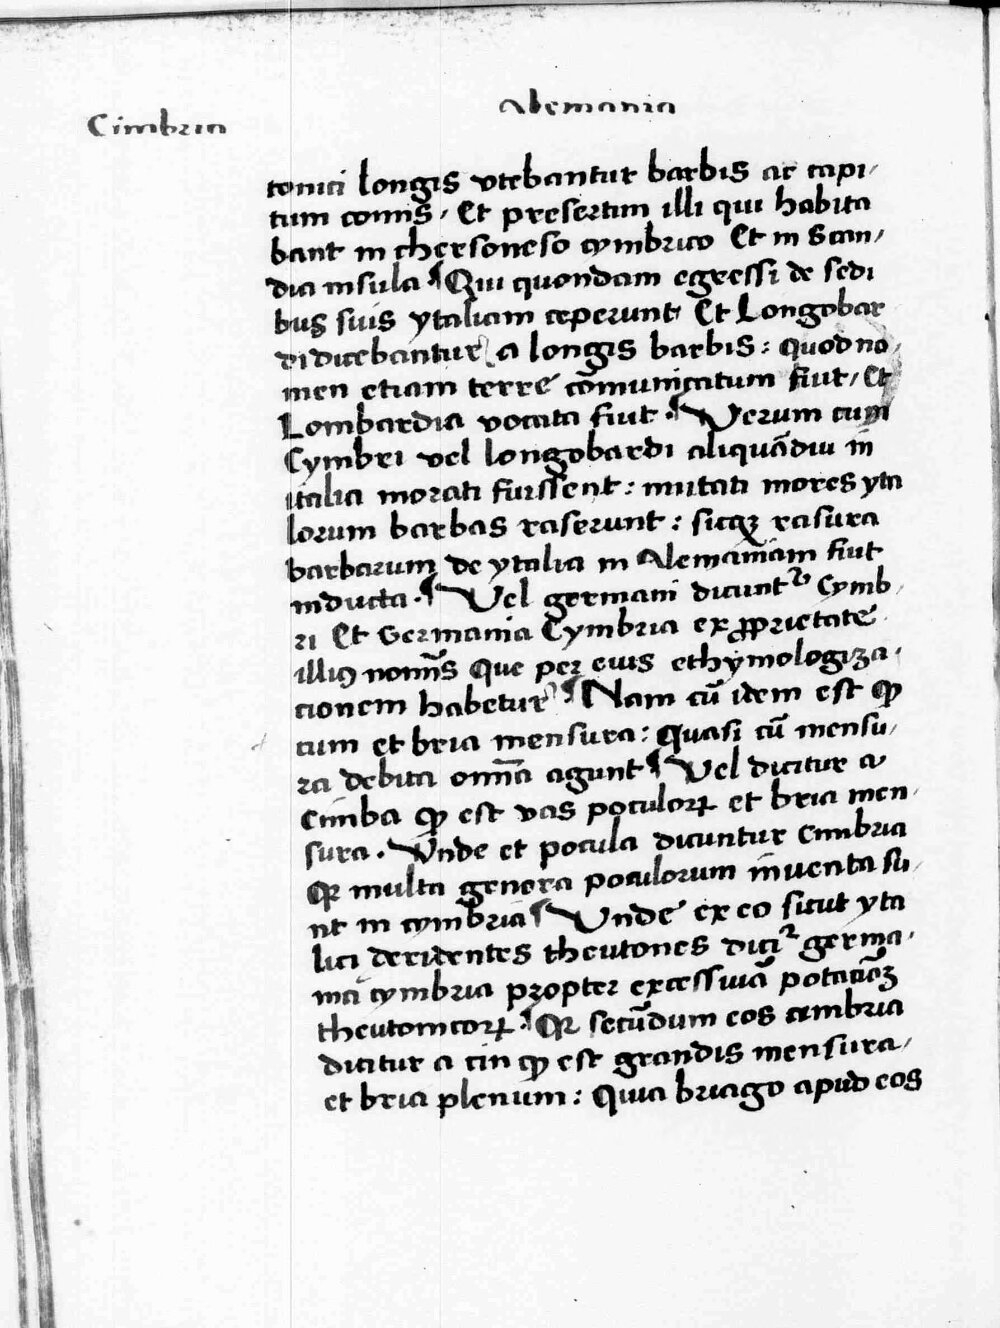 Alemania
Cimbria
tonici longis vtebantur barbis ac capi-
tum comis. Et presertim illi qui habita
bant in chersoneso cymbrico Et in Scan-
dia insula ¶ Qui quondam egressi de sedi
bus suis ytaliam ceperunt Et Longobar
di dicebantur a longis barbis: Quod no-
men etiam terre cōmunicatum fiut, Et
Lombardia vocata fiut. ¶ Verum cum
Cymbri vel longobardi aliquādiu in
italia morati fuissent: mutati mores yta
lorum barbas raserunt: sicqꝫ rasura
barbarum de ytalia in Alemaniam fiut
inducta. ¶ Vel germani dicuntᵘʳ Cymb-
ri Et Germania Cymbria ex ꝓprietate
illiꝰ nomīs Que per eius ethymologiza-
cionem habetur ¶ Nam cū idem est ꝙ
cum et bria mensura: Quasi cū mensu-
ra debita omīa agunt ¶ Vel dicitur a
Cimba ꝙ est vas poculoꝝ et bria men-
sura. Vnde et pocula dicuntur Cimbria
Qꝛ multa genera poculorum inuenta su-
nt in cymbria ¶ Vnde ex eo sicut yta
lici deridentes theutones diciᵗ germa-
nia cymbria propter excessiuā potaciōꝫ
theutonicoꝝ. ¶ Qꝛ secūdum eos cimbria
dicitur a cin ꝙ est grandis mensura,
et bria plenum: Quia briago apud eos